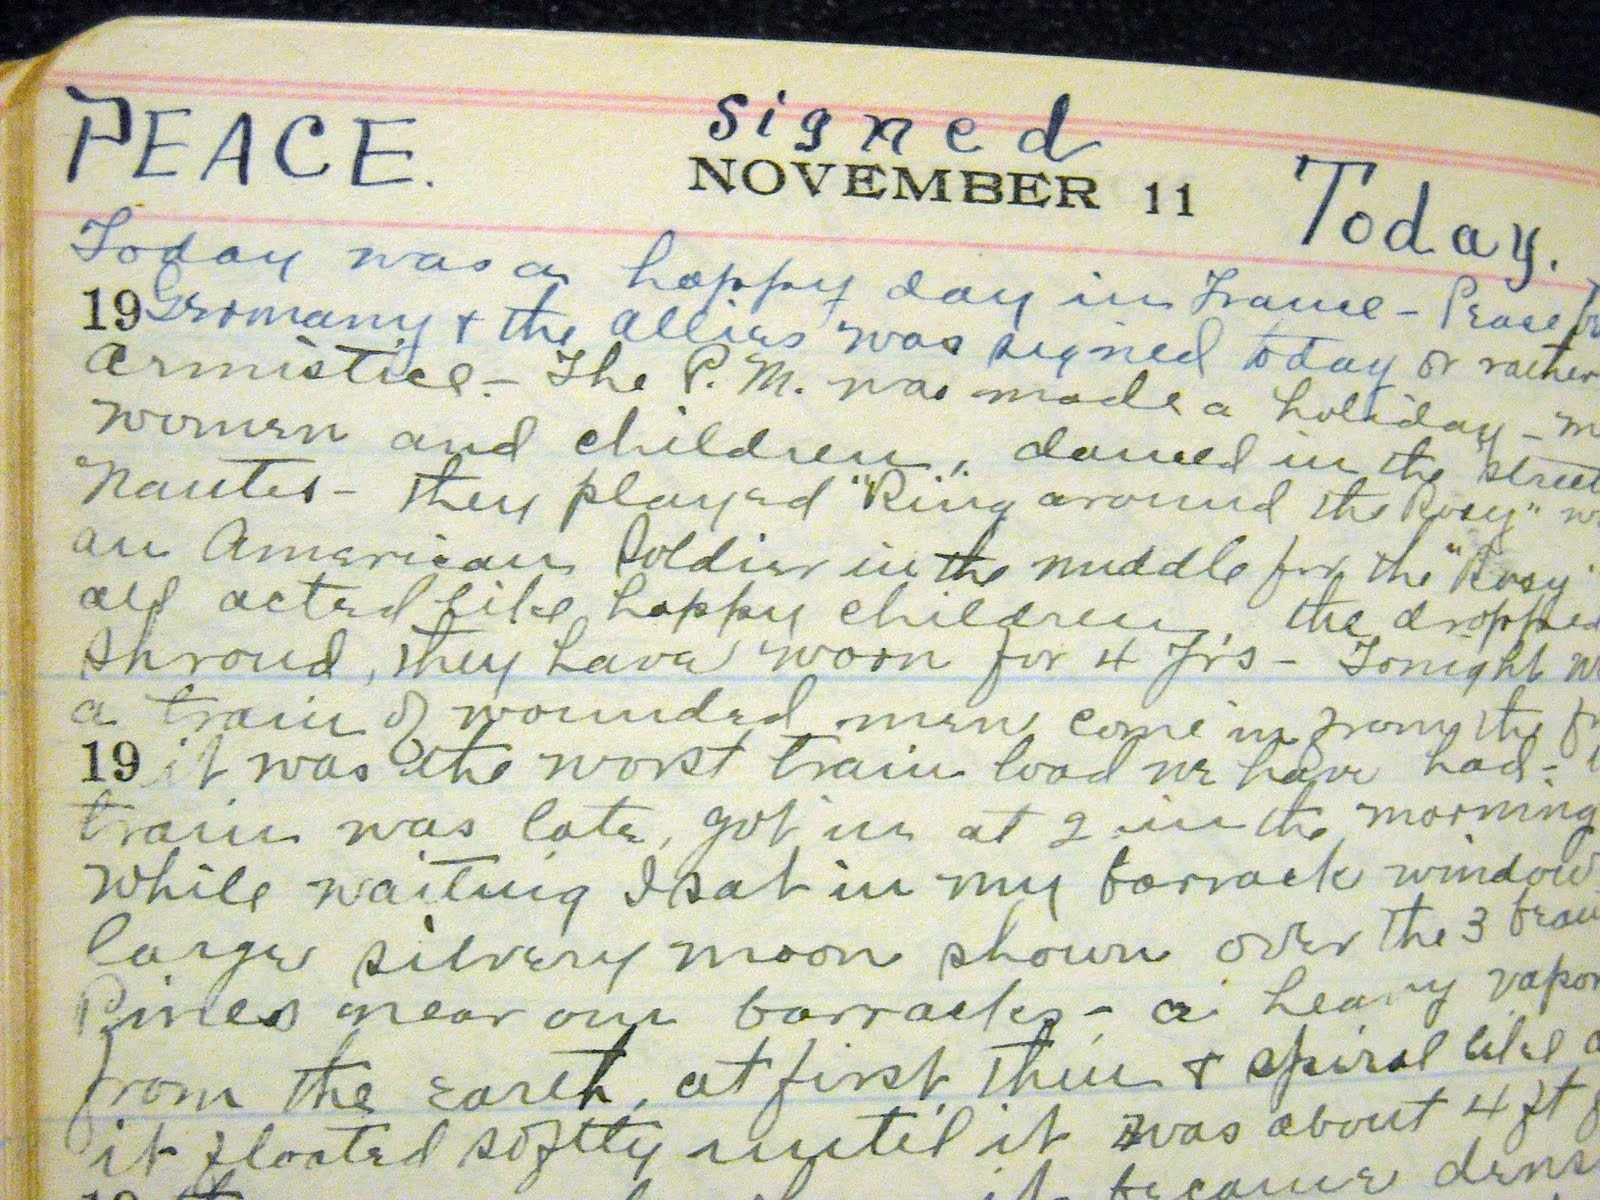 PEACE. signed Today.
NOVEMBER 11
Today was a happy day in France - Peace
19 Germany & the allies was signed today or rather
Armistice - The P. M. was made a holiday -
women and children, danced in the street
Nantes - they played "Ring around the Rosy"
an American Soldier in the middle for the "Rosy"
all acted like happy children, the dropped
shroud, they have worn for 4 Yrs - Tonight
a train of wounded men come in from the
19 it was the worst train load we have had -
train was late, got in at 2 in the morning
While waiting I sat in my barrack window
large silvery moon shown over the 3
Pines near our barracks - a heavy vapor
from the earth, at first thin & spiral like
it floated softly until it was about 4 ft
19 it became